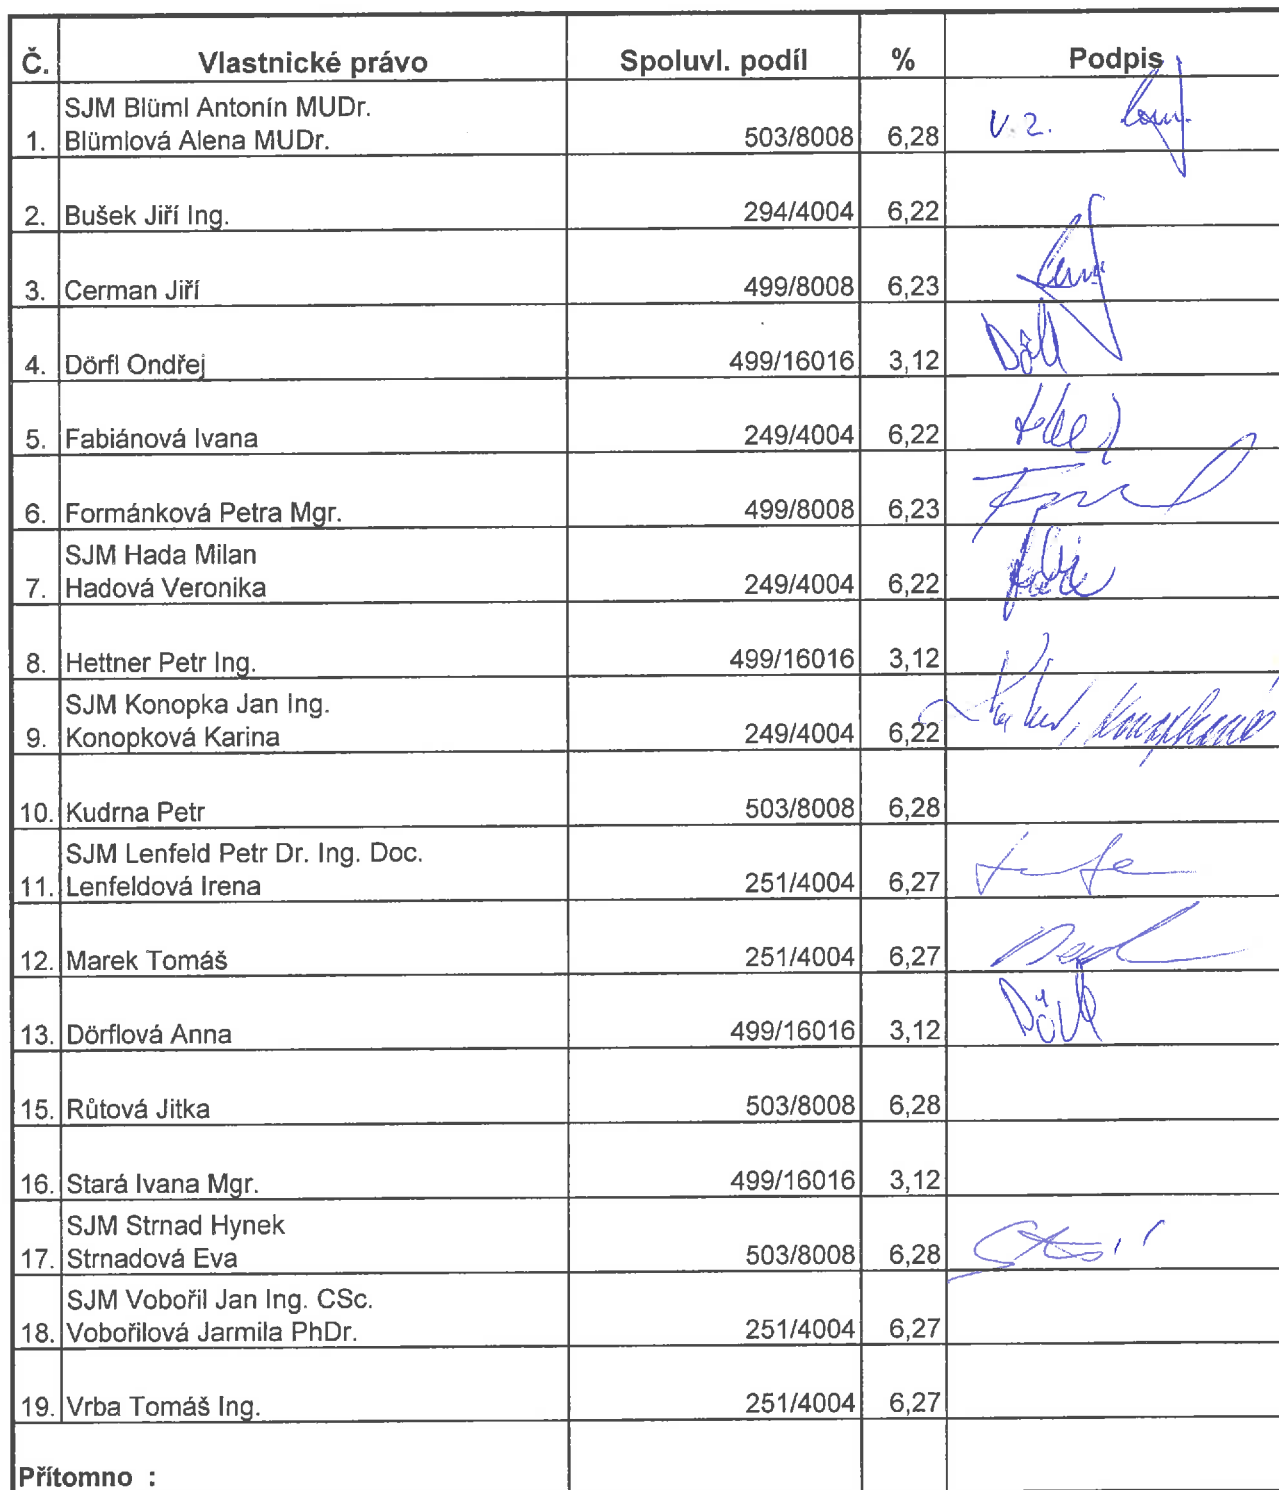 Č. Vlastnické právo Spoluvl. podíl % Podpis
SJM Blüml Antonín MUDr.
1. Blümlová Alena MUDr. 503/8008 6,28 v.z.
2. Bušek Jiří Ing. 294/4004 6,22
3. Cerman Jiří 499/8008 6,23
4. Dörfl Ondřej 499/16016 3,12
5. Fabiánová Ivana 249/4004 6,22
6. Formánková Petra Mgr. 499/8008 6,23
SJM Hada Milan
7. Hadová Veronika 249/4004 6,22
8. Hettner Petr Ing. 499/16016 3,12
SJM Konopka Jan Ing.
9. Konopková Karina 249/4004 6,22
10. Kudrna Petr 503/8008 6,28
SJM Lenfeld Petr Dr. Ing. Doc.
11. Lenfeldová Irena 251/4004 6,27
12. Marek Tomáš 251/4004 6,27
13. Dörflová Anna 499/16016 3,12
15. Růtová Jitka 503/8008 6,28
16. Stará Ivana Mgr. 499/16016 3,12
SJM Strnad Hynek
17. Strnadová Eva 503/8008 6,28
SJM Vobořil Jan Ing. CSc.
18. Vobořilová Jarmila PhDr. 251/4004 6,27
19. Vrba Tomáš Ing. 251/4004 6,27
Přítomno :